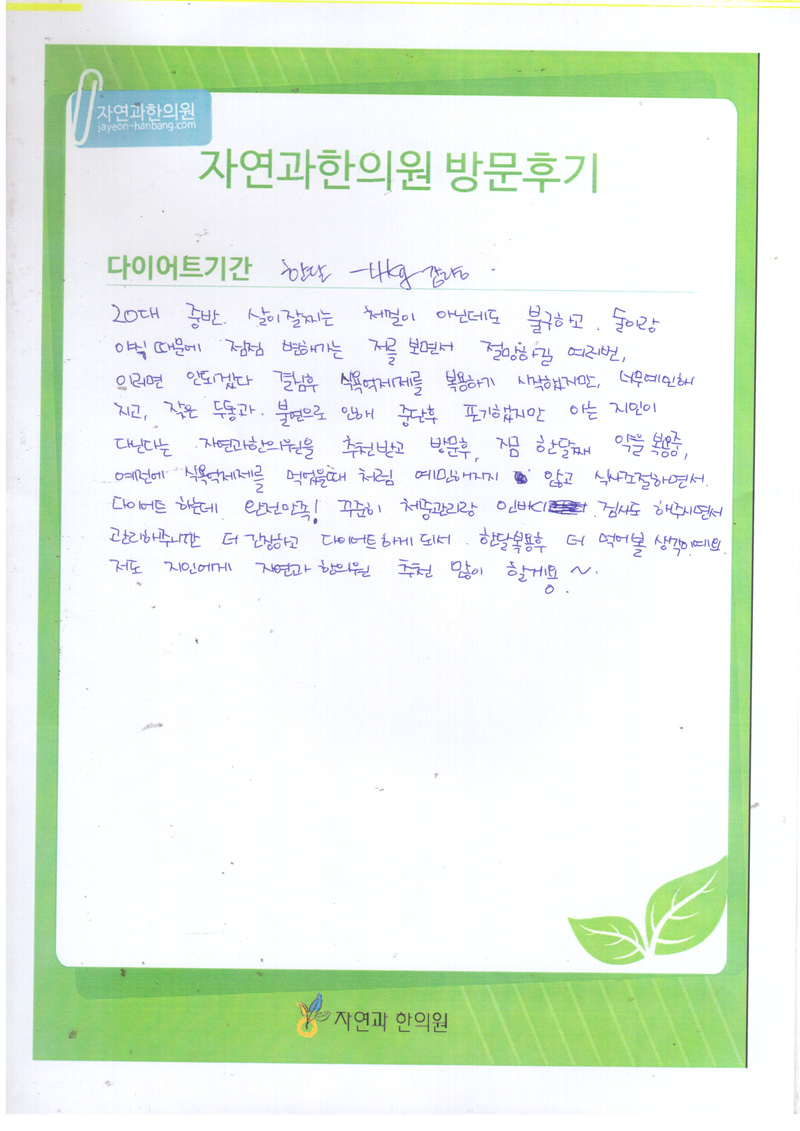 자연과한의원
jayeon-hanbang.com
자연과한의원 방문후기
다이어트기간 한달 -4kg 감량.
20대 중반. 살이잘찌는 체질이 아닌데도 불구하고. 술이랑
야식 때문에 점점 변해가는 저를 보면서 절망하길 여러번,
이러면 안되겠다 결심후 식욕억제제를 복용하기 시작했지만, 너무예민해
지고, 잦은 두통과. 불면으로 인해 중단후 포기했지만 아는 지인이
다닌다는 자연과한의원을 추천받고 방문후, 지금 한달째 약을 복용중,
예전에 식욕억제제를 먹었을때 처럼 예민해지지 않고 식사조절하면서.
다이어트 하는데 완전만족! 꾸준히 체중관리랑 인바디 검사도 해주시면서
관리해주니깐 더 긴장하고 다이어트하게 되서. 한달복용후 더 먹어볼 생각이예요
저도 지인에게 자연과 한의원 추천 많이 할게용 ~.
자연과 한의원